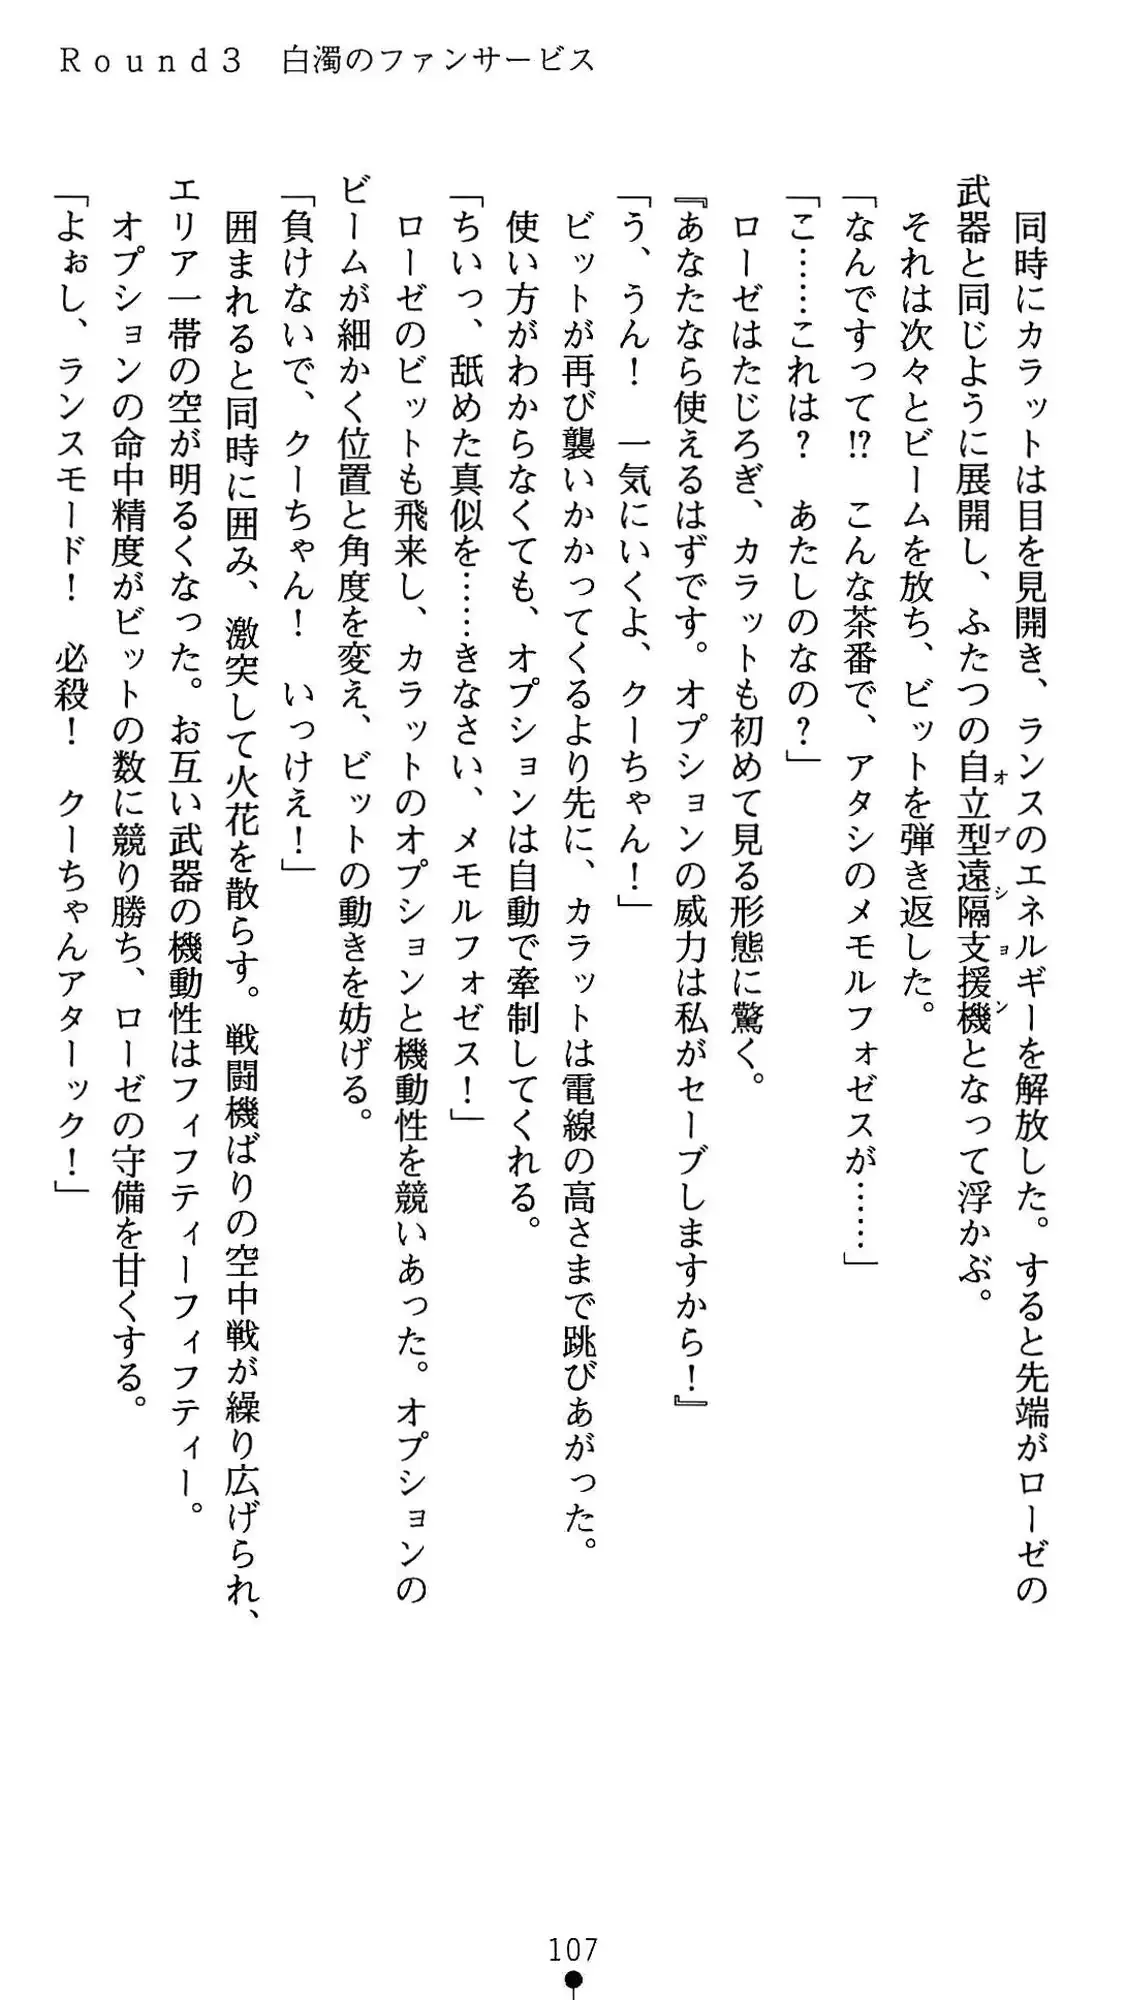 Ｒｏｕｎｄ３　白濁のファンサービス
　同時にカラットは目を見開き、ランスのエネルギーを解放した。すると先端がローゼの
武器と同じように展開し、ふたつの自立型遠隔支援機となって浮かぶ。
オプション
　それは次々とビームを放ち、ビットを弾き返した。
「なんですって!?　こんな茶番で、アタシのメモルフォゼスが……」
「こ……これは？　あたしのなの？」
　ローゼはたじろぎ、カラットも初めて見る形態に驚く。
『あなたなら使えるはずです。オプションの威力は私がセーブしますから！』
「う、うん！　一気にいくよ、クーちゃん！」
　ビットが再び襲いかかってくるより先に、カラットは電線の高さまで跳びあがった。
　使い方がわからなくても、オプションは自動で牽制してくれる。
「ちいっ、舐めた真似を……きなさい、メモルフォゼス！」
　ローゼのビットも飛来し、カラットのオプションと機動性を競いあった。オプションの
ビームが細かく位置と角度を変え、ビットの動きを妨げる。
「負けないで、クーちゃん！　いっけえ！」
　囲まれると同時に囲み、激突して火花を散らす。戦闘機ばりの空中戦が繰り広げられ、
エリア一帯の空が明るくなった。お互い武器の機動性はフィフティーフィフティー。
　オプションの命中精度がビットの数に競り勝ち、ローゼの守備を甘くする。
「よぉし、ランスモード！　必殺！　クーちゃんアターック！」
107